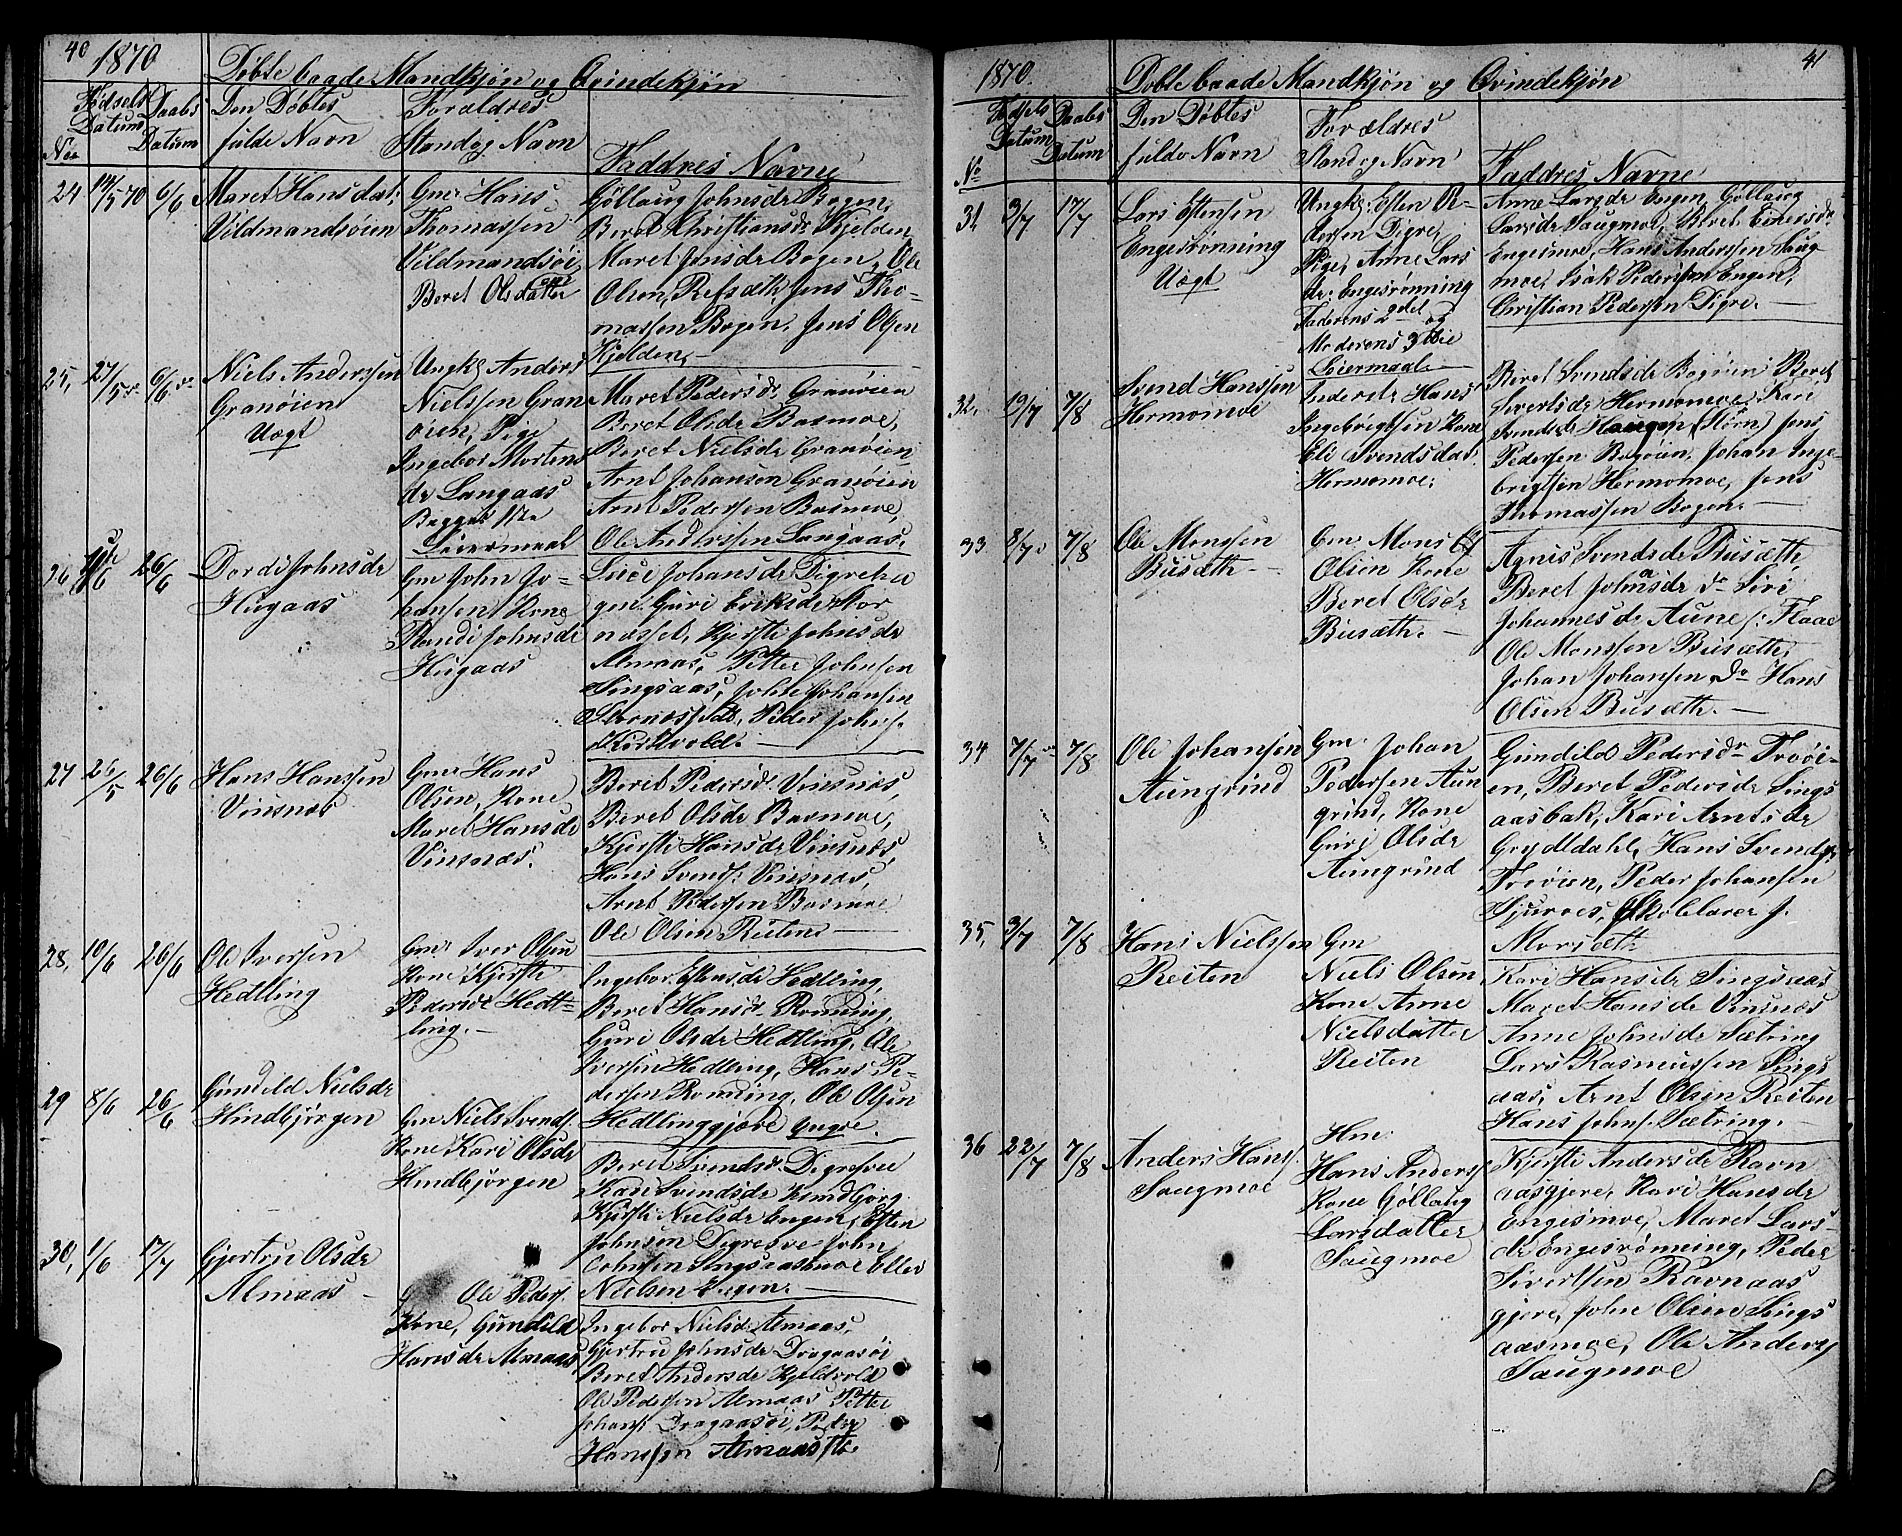 40 1870 Döbte baade Mandkjön og Qvindekjön
No Födsels Datum Daabs Datum Den Döbtes fulde Navn Forældres Stand og Navn Faddres Navne
24 14/5 70 6/6
Maret Hansdat:
Vildmandsöien
Gmr Hans
Thomassen
Vildmandsöi,
Beret Olsdatter
Göllaug Johnsdr Bogen,
Beret Christiansdr Kjelden
Maret Jensdr Bogen, Ole
Olsen Refsæth, Jens Tho-
massen Bogen, Jens Olsen
Kjelden,
25, 27/5 6/6
Niels Anderssen
Granöien
Uægt
Ungk Anders
Nielssen Gran
öien, Pige
Ingebor Mortens
dr Langaas
Begges 1ste
Leiermaal
Maret Pedersdr Granöien
Beret Olsdr Basmoe,
Beret Nielsdr Granöien
Arnt Johansen Granöien
Arnt Pederssen Basmoe,
Ole Anderssen Langaas.
26 26/6
Dordi Johnsdr
Hugaas
Gm John Jo-
hansen Kone
Randi Johnsdr
Hugaas
Luci Johansdr Digrehu
gen, Guri Eriksdr Stor
næsset, Kjersti Johnsdr
Almaas, Petter Johnsen
Singsaas, John Johansen
Peder Johns.
Kortvold.
27 26/5 26/6
Hans Hanssen
Vinsnæs
Gmr Hans
Olsen, Kone
Maret Hansdr
Vinsnæs.
Beret Pedersdr Vinsnæs,
Beret Olsdr Basmoe,
Kjersti Hansdr Vinsnæs,
Hans Svends. Vinsnæs,
Arnt Pederssen Basmoe
Ole Olsen Reiten
28, 10/6 26/6
Ole Iversen
Hedtling
Gmr Iver Olsen
Kone Kjersti
Pedersdr Hedt-
ling.
Ingebor Estensdr Hedtling,
Beret Hansdr Rönning,
Guri Olsdr Hedtling, Ole
Iversen Hedling, Hans Pe-
dersen Rönning, Ole Olsen
Hedlinggjære
29 8/6 26/6
Gunild Nielsdr
Hindbjörgen
Gm Niels Svends.
Kone Kari Olsdr
Hindbjörgen
Beret Svendsdr Digresve
Kari Svendsdr Hindbjörg
Kjersti Nielsdr Engen, Esten
Johnsen Digresve John
Johnsen Singsaasmoe Eller
Nielsen Engen.
30, 1/6 17/7
Gjertru Olsdr
Almaas
Ole Peders.
Kone, Gunild
Hansdr Almaas
Ingebor Nielsdr Almaas,
Gjertru Johnsdr Dragaasöi
Beret Andersdr Kjeldvold
Ole Pedersen Almaas Petter
Johans Dragaasöi, Peder
Hanssen Almaas
1870. Döbte baade Mandkjön og Qvindekjön 41
No Födsels Datum Daabs Datum Den Döbtes fulde Navn Forældres Stand og Navn Faddres Navne
31 3/7 17/7
Lars Estensen
Engesrönning
Uægt
Ungk: Esten P-
dersen Digre,
Pige, Anne Lars
dr: Engesrönning
Faderens 2det og
Moderens 3die
Leiermaal
Anne Larsdr Engen, Göllaug
Larsdr Saugmoe, Beret Einersdr
Engesmoe, Hans Anderssen Saug
moe, Isak Pederssen Engen,
Christian Pederssen Digre.
32. 19/7 7/8
Svend Hanssen
Hermomoe
Inderste Hans
Ingebrigtsen Kone
Eli Svendsdat
Hermomoe;
Beret Svendsdr Bogöien Beret
Sivertsdr Hermomoe, Kari
Svendsdr Haugen (Störn) Jens
Pederssen Bogöien, Johan Inge-
brigtsen Hermomoe, Jens
Thomassen Bogen.
33 8/7 7/8
Ole Monssen
Busæth
Gm Mons
Olsen Kone
Beret Olsdr
Busæth.
Agnis Svendsdr Busæth,
Beret Johnsdr do Siri
Johannesdr Aune Flaae
Ole Monssen Busæth,
Johan Johansen do Hans
Olsen Busæth.
34 7/7 7/8
Ole Johansen
Aungrind
Gm Johan
Pederssen Aun
grind, Kone
Guri Olsdr
Aungrind
Gunild Pedersdr Tröi-
en, Beret Pedersdr Sings
aasbak, Kari Arntsdr
Grydtdahl, Hans Svends.
Tröien, Peder Johansen
Skolelærer J.
Morsæth
35, 3/7 7/8
Hans Nielssen
Reiten
Gm
Niels Olsen
Kone Anne
Nielsdatter
Reiten
Kari Hansdr Singsaas
Maret Hansdr Vinsnæs
Anne Johnsdr Sætring
Lars Rasmussen Sings
aas, Arnt Olsen Reiten
Hans Johns. Sætring.
36 22/7 7/8
Anders Hans.
Saugmoe
Hm:
Hans Anders.
Kone Göllaug
Larsdatter
Saugmoe
Kjersti Andersdr Ravn
aasgjere, Kari Hansdr
Engesmoe, Maret Lars-
dr Engesrönning, Peder
Sivertsen Ravnaas
gjere, John Olsen Sings
aasmoe, Ole Anders.
Saugmoe